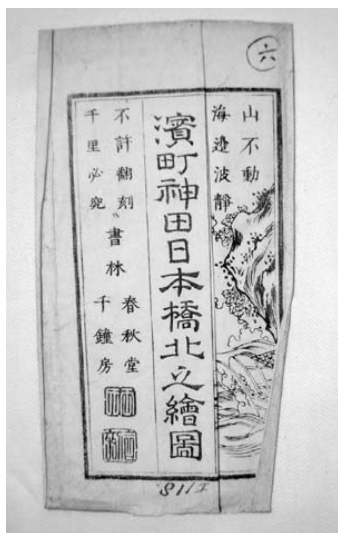 六
山不動
海邉波静
濱町神田日本橋北之繪圖
不許翻刻
千里必究
書林
春秋堂
千鐘房